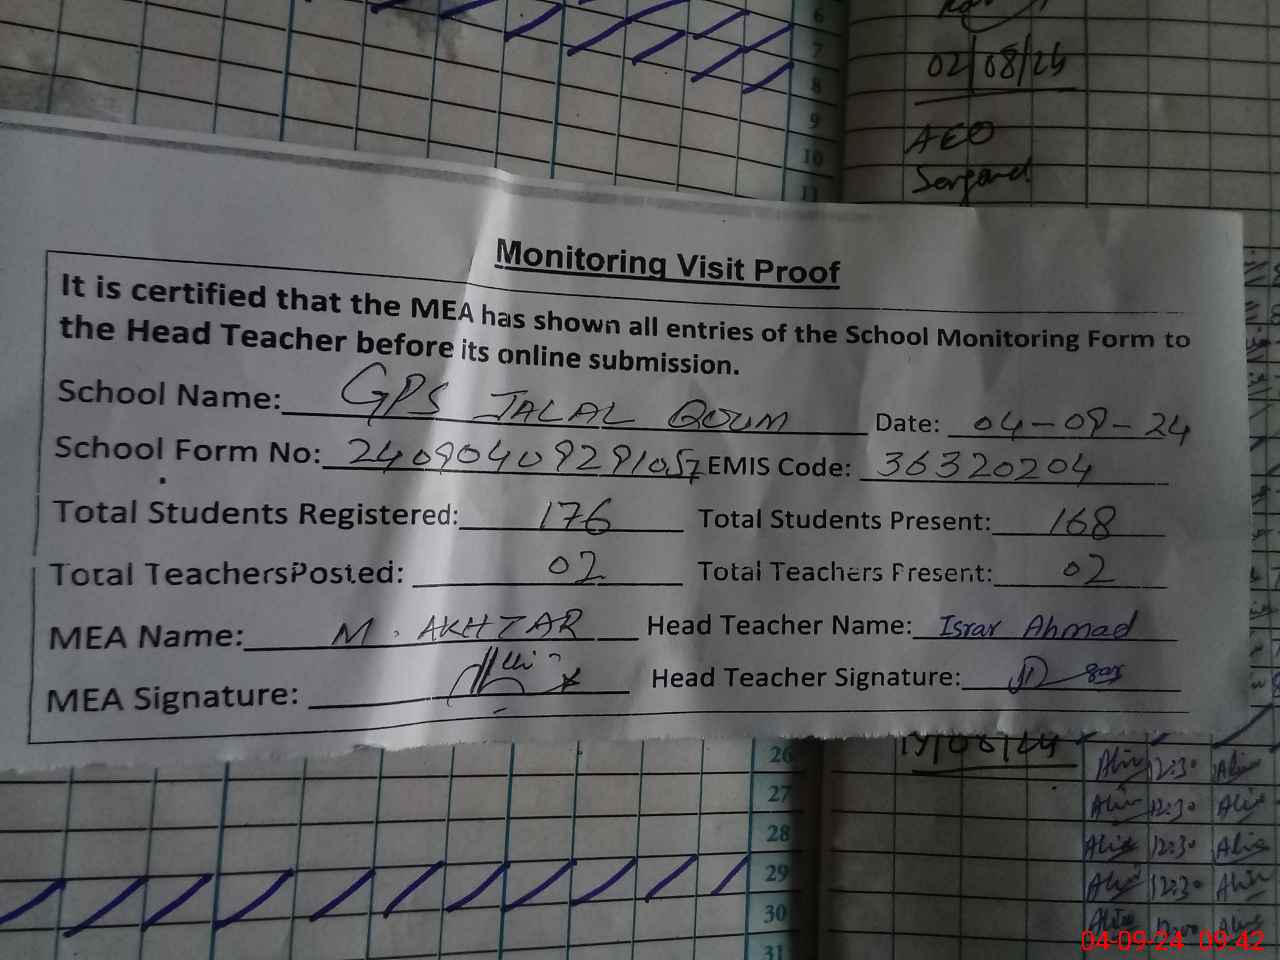 6
7
8
9
10
11
02/08/24
AEO
Monitoring Visit Proof
It is certified that the MEA has shown all entries of the School Monitoring Form to
the Head Teacher before its online submission.
School Name: GPS JALAL QOUM Date: 04-09-24
School Form No: EMIS Code: 36320204
Total Students Registered: 176 Total Students Present: 168
Total TeachersPosted: 02 Total Teachers Present: 02
MEA Name: M. AKHTAR Head Teacher Name: Israr Ahmad
MEA Signature: Head Teacher Signature:
26
12:30
27
12:30
28
12:30
29
12:30
30
31
04-09-24 09:42